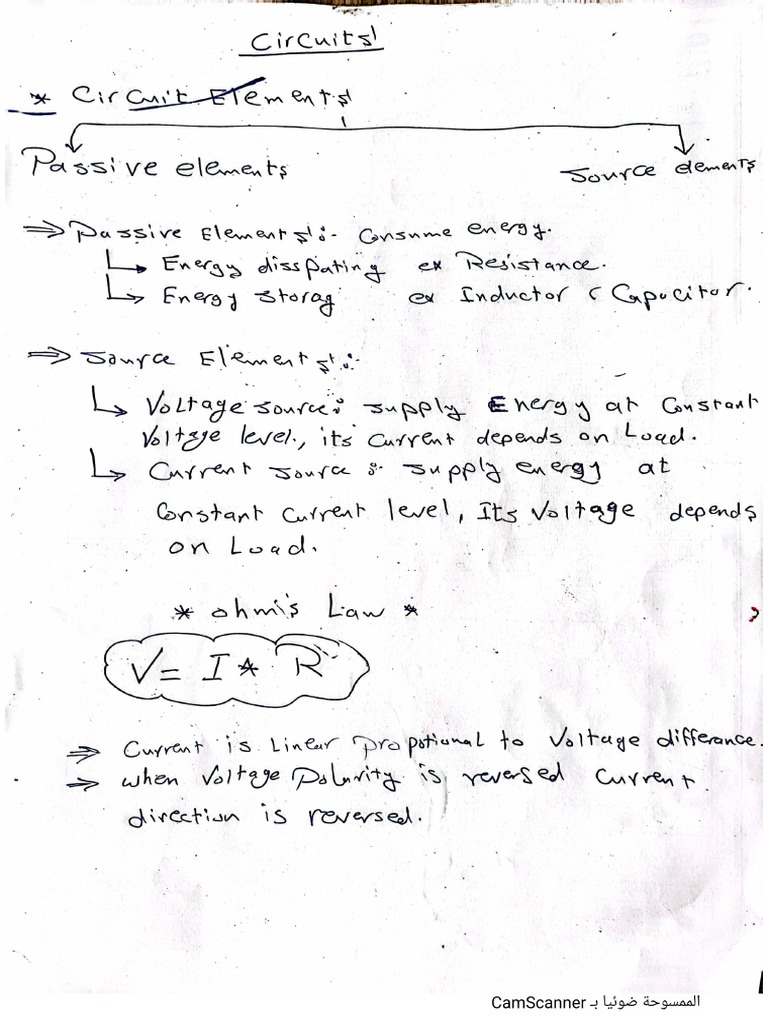 Circuits
* Circuit Elements
Passive elements
Source elements
⇒ Passive Elements :- Consume energy.
↳ Energy disspating ex Resistance.
↳ Energy storag ex Inductor & Capacitor.
⇒ Source Elements :-
↳ Voltage source : supply Energy at Constant
Voltage level, its current depends on Load.
↳ Current source : supply energy at
Constant current level, Its Voltage depends
on Load.
* ohm's Law *
V = I * R
⇒ Current is Linear propotional to Voltage differance.
⇒ when Voltage Polarity is reversed current
direction is reversed.
الممسوحة ضوئيا بـ CamScanner